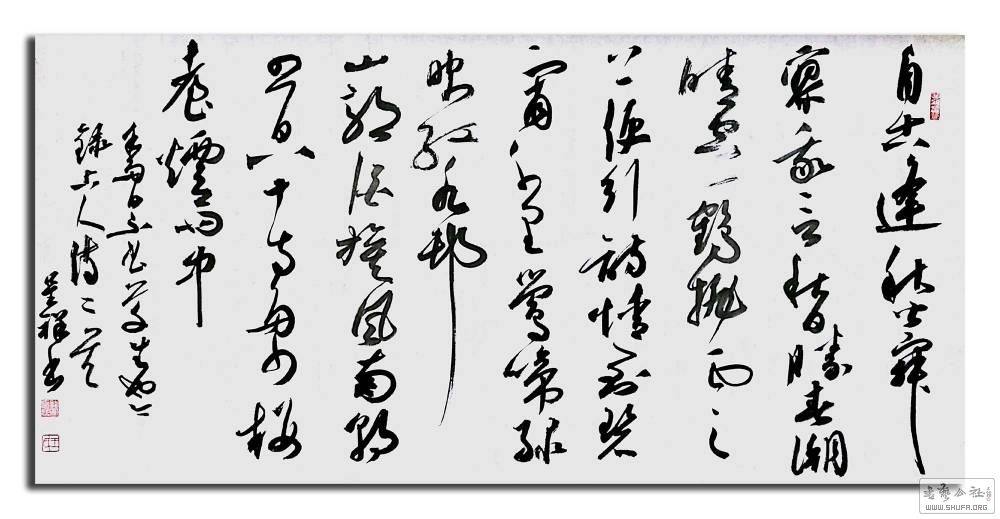 自古逢秋悲寂
寥我言秋日勝春潮
晴空一鶴排雲
上便引詩情到碧
霄千里鶯啼綠
映紅水邨
山郭酒旗風南朝
四百八十寺多少樓
臺煙雨中
錄古人詩二首
書
WWW.SHUFA.ORG